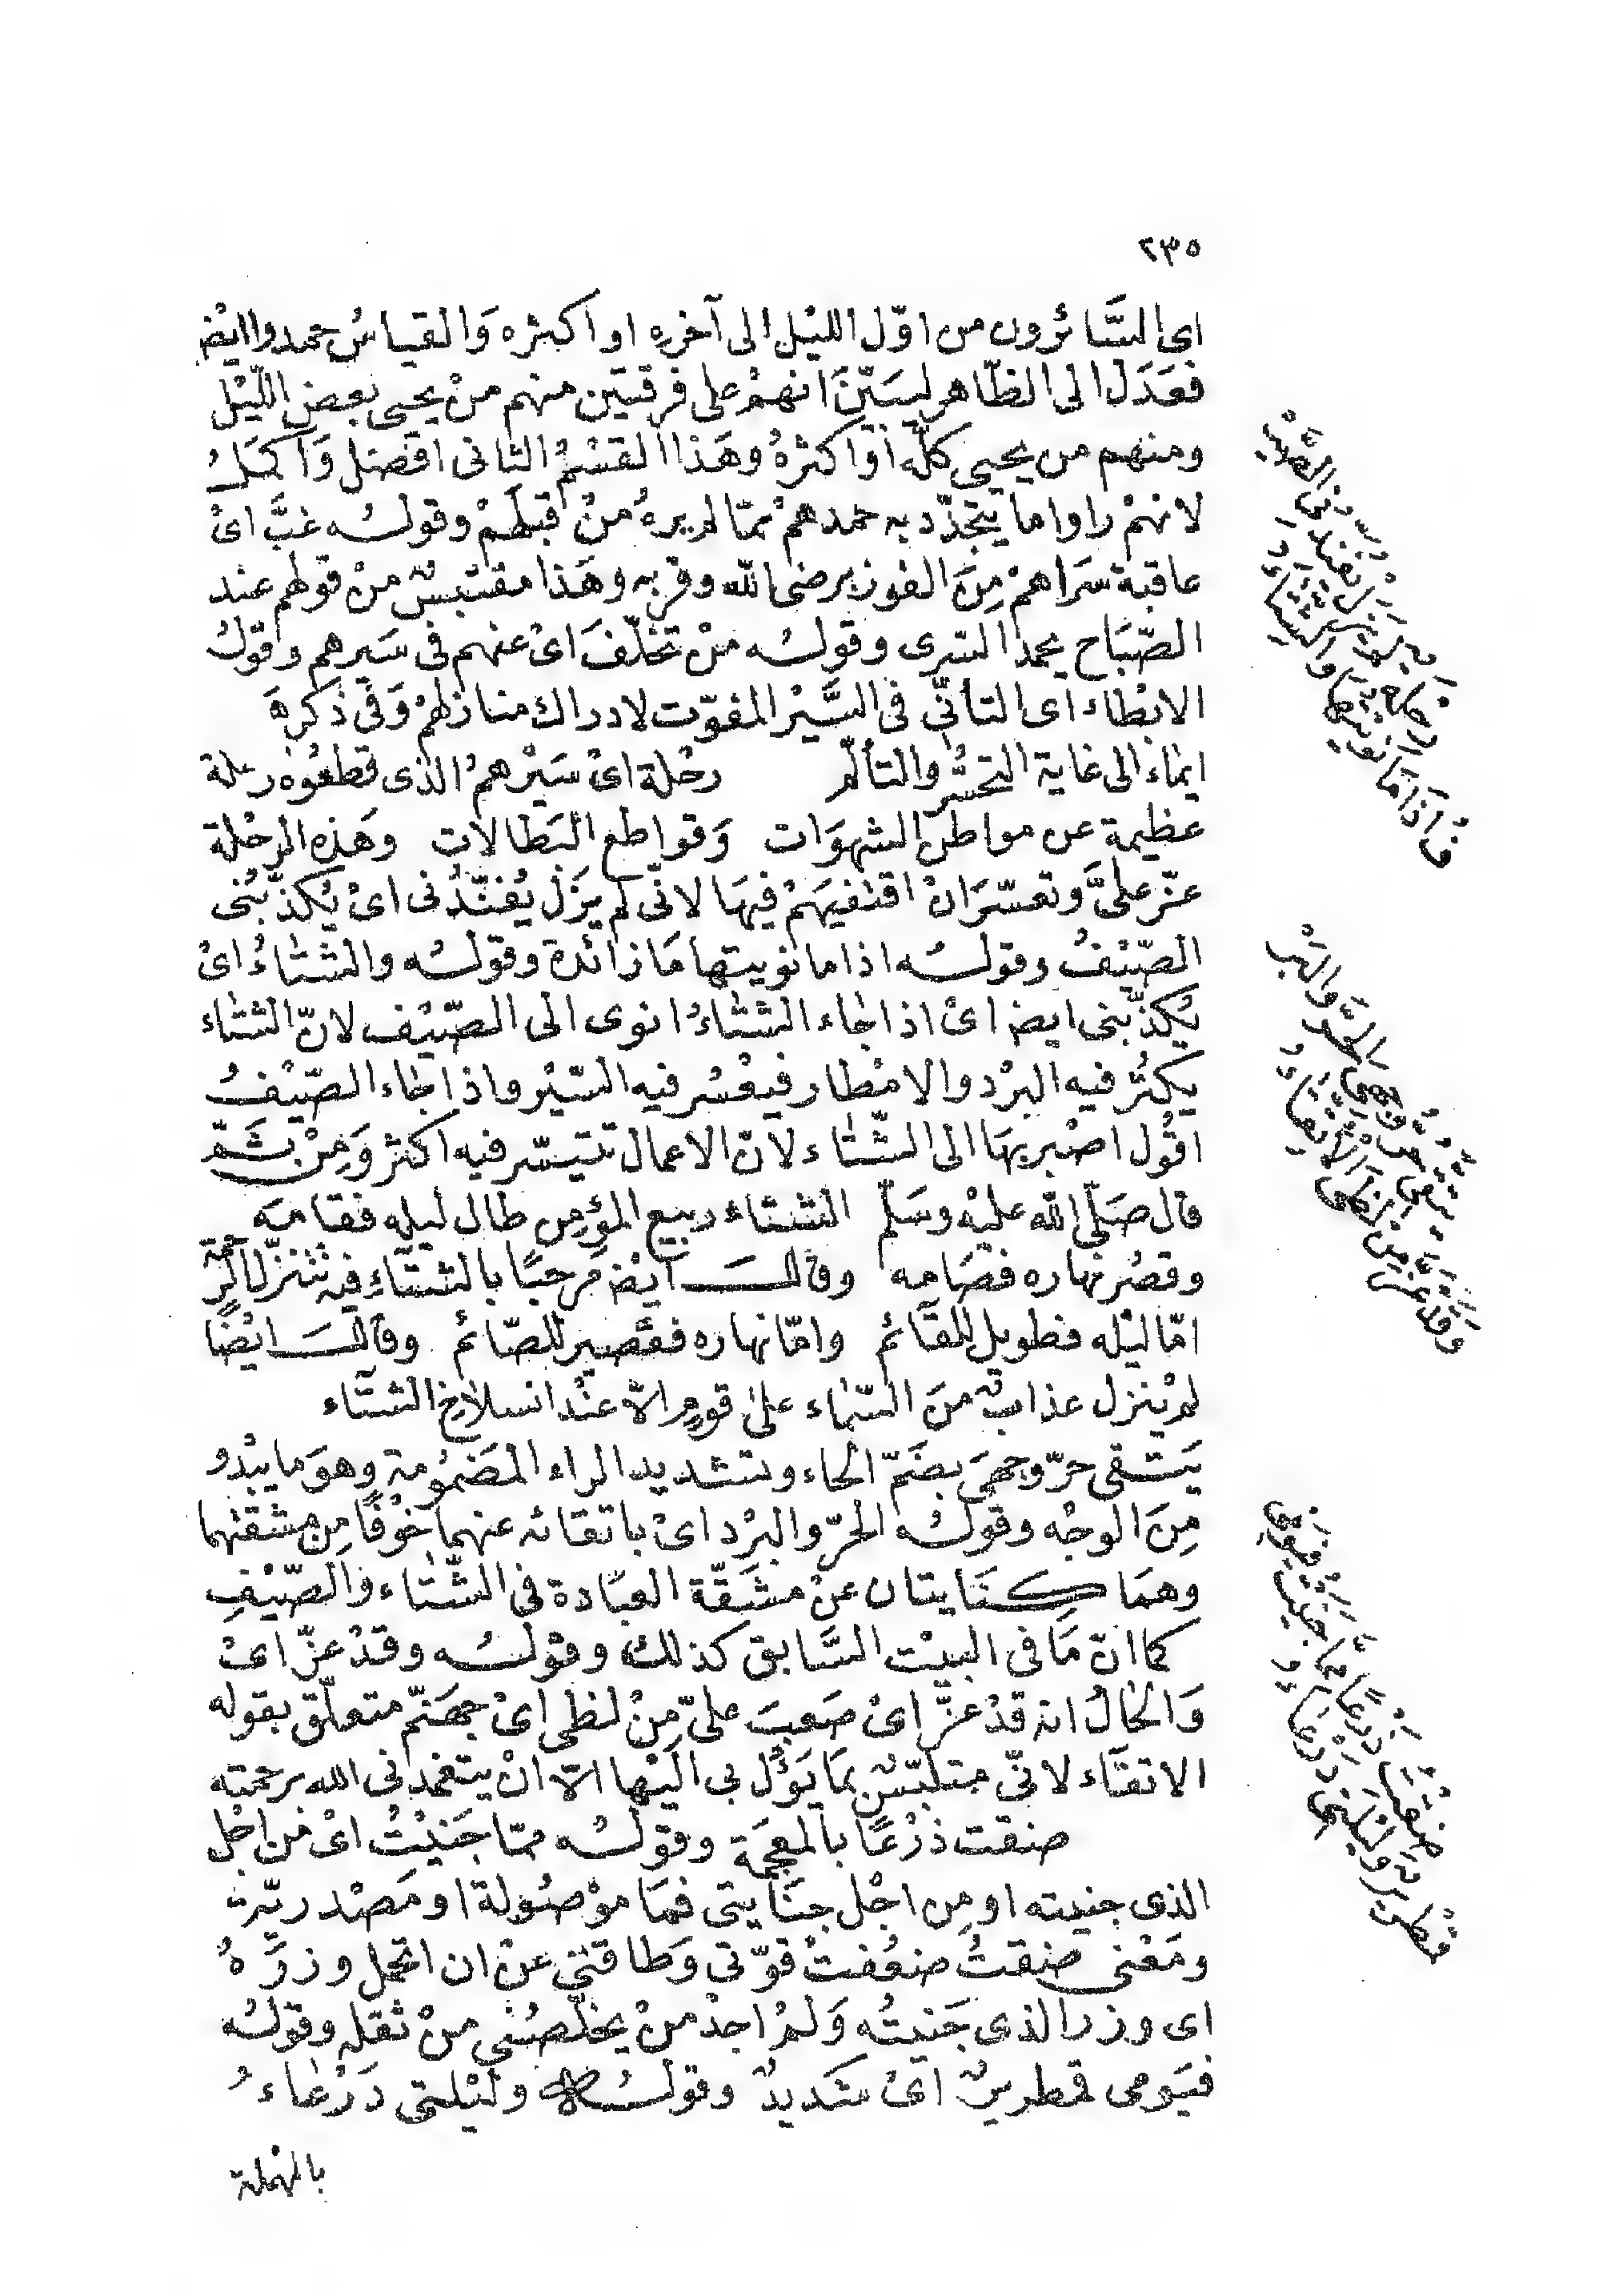 ٢٣٥
اى السَّائرون من اوّل الليْل الى آخره او اكثره وَالقياسُ حمدوا ايْض
فعَدَل الى الظّاهر ليبَيّنَ انهمْ على فرقتين منهم منْ يحيى بعض اللّيْل
ومنهم من يحيى كلّه اوْ اكثرهُ وهَذا القسْمُ الثانى افضل وَاكمَلُ
لانهمْ راوا ما يتجدّد به حمدهمْ ممّا لم يرهُ منْ قبلهمْ وقولـه غبَّ اىْ
عاقبة سَراهمْ مِنَ الفوز برضى الله وقربه وهَذا مقتبسٌ منْ قولهم عند
الصّبَاح يحمد السّرى وقولـه منْ تخلّفَ اىْ عنهم فى سَيرهم وقولُ
الابْطاء اى التأنّى فى السَّيْر المفوّت لادراك منازلهمْ وَفى ذكرهَ
ايْماء الى غاية التحسُّر والتألّم رحْلة اىْ سَيْرهمُ الذى قطعُوه رحلة
عظيمة عن مواطن الشهوَات وَقواطع البَطالات وهَذه الرحْلة
عزّ علىَّ وتعسّرَ انْ اقتفيَهمْ فيهَا لانّى لم يزَلْ يُفنّدُنى اىْ يُكذّبُنى
الصّيْفُ وقولـه اذا ما نويتها مَا زائدة وقولـه والشتَاءُ اىْ
يُكذّبنى ايض اىْ اذا جَاء الشتَاءُ انوى الى الصّيْف لانّ الشتَاء
يكثُر فيه البرْد والامْطار فيعْسُر فيه السّيْر واذا جَاء الصّيْفُ
اقُول اصْبر بهَا الى الشّتَاء لانّ الاعمال تتيسّر فيه اكثر وَمِنْ ثَمّ
قال صَلّى الله عليْه وسَلّم الشتاء ربيع المؤمن طال ليله فقامه
وقصُر نهاره فصَامه وقالـ ايْض مَرحبًا بالشتَاءِ فيه تتنزّل الرّحمَة
امّا ليْله فطويل للقَائم وامّا نهاره فقصير للصّائم وقالـ ايْضًا
لمْ ينزل عذابٌ منَ السّمَاء علىَ قومٍ الاّ عنْد انسلاخ الشتاء
يَتقى حرّ وجهىَ بضَمّ الحاء وتشديد الراء المَضمُومة وهوَ ما يبْدُو
مِنَ الوجْه وقولـه الحرّ والبرْد اىْ باتقائه عنهما خوْفًا مِن مشقتهما
وهمَا كنَايتان عنْ مشَقّة العبَادة فى الشّتَاء والصّيْفِ
كما انّ مَا فى البيْت السَّابق كذلك وقولـه وقدْ عزّ اىْ
وَالحَالُ انه قدْ عزَّ اىْ صَعبَ علىّ مِنْ لظى اىْ جهَنّم متعلّق بقوله
الاتقَاء لانّى متلبّسٌ بمَا يَؤُل بى اليْها الاّ انْ يتغمدنى الله برحمته
ضقت ذرْعًا بالمعجمَة وقولـه ممّا جَنيْتُ اىْ مْن اجْل
الذى جنيته او مِن اجْل جنَايتى فمَا موْصُولة او مَصْدريّة
ومَعْنى ضقتُ ضعُفتْ قوّتى وَطاقتى عنْ ان اتحمل وزرَهُ
اى وزر الذى جَنيتُه وَلمْ اجدْ منْ يخلّصُنى منْ ثقله وقولـه
فيَومى قمطريرٌ اىْ شَديدٌ وقولـه وليْلتى دَرْعَاءُ
بالمهملة
رحلة لم يزل يفندنى الصيف
اذا ما نويتها والشتاء
يتقى حر وجهى الحر والبرد
وقد عز من لظى الاتقاء
ضقت ذرعا مما جنيت فيومى
قمطرير وليلتى درعاء